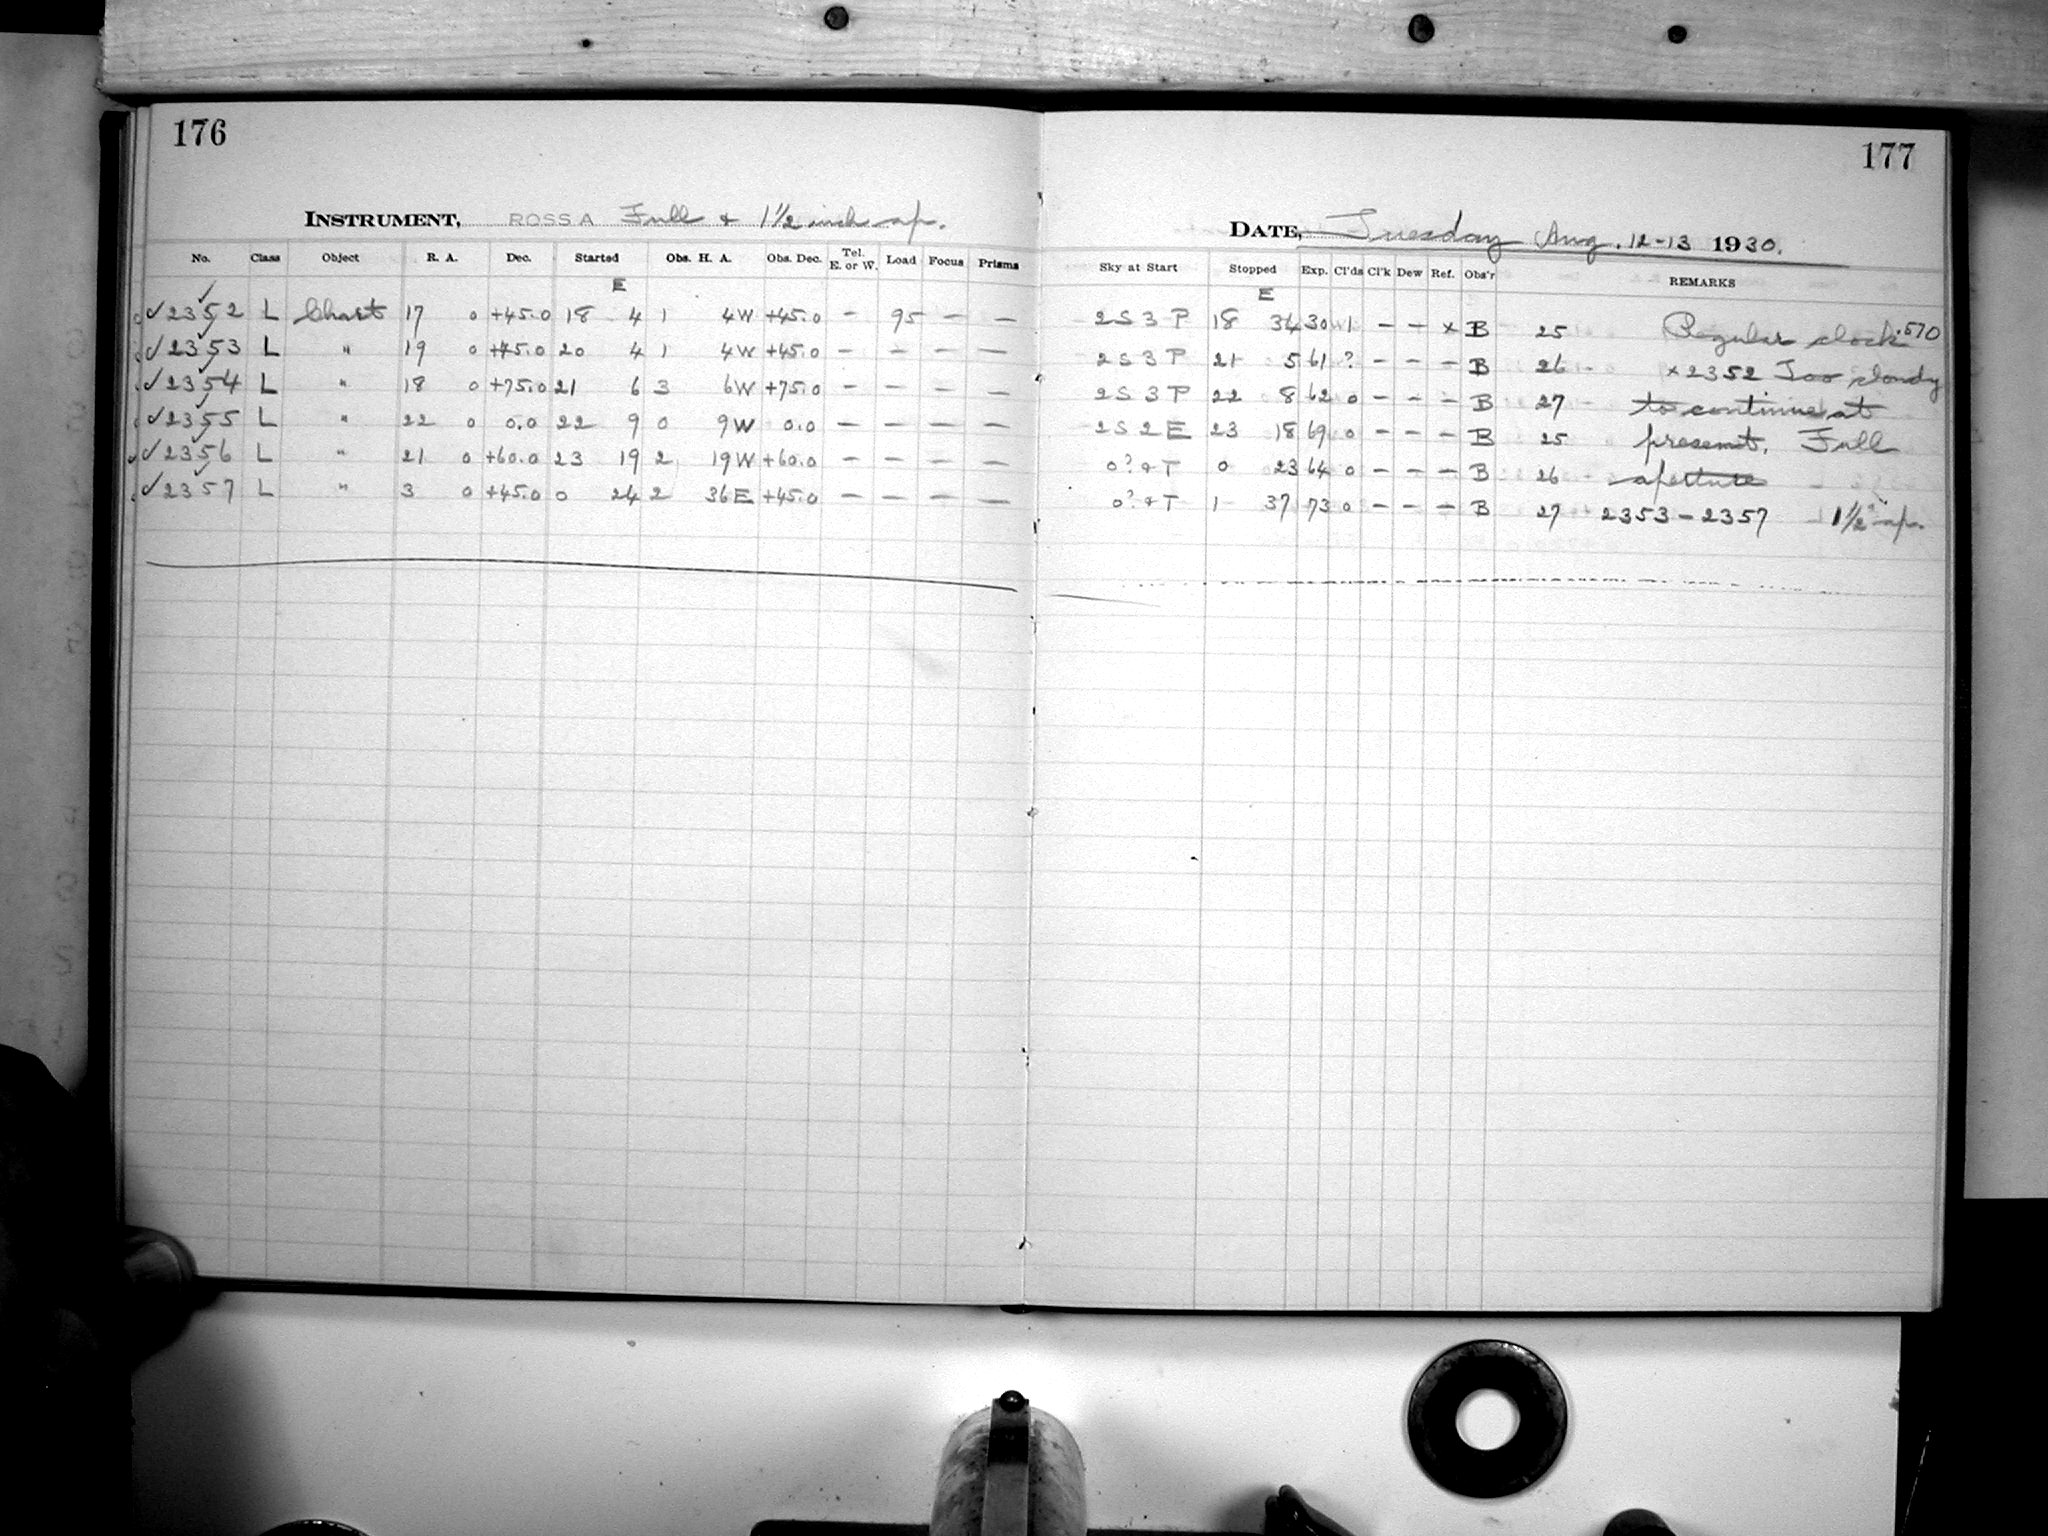 176
INSTRUMENT, ROSS A Full & 1½ inch ap.
No. Class Object R. A. Dec. Started Obs. H. A. Obs. Dec. Tel. E. or W. Load Focus Prisms
E
✓2352 L Chart 17 0 +45.0 18 4 1 4W +45.0 - 95 - -
✓2353 L " 19 0 +45.0 20 4 1 4W +45.0 - - - -
✓2354 L " 18 0 +75.0 21 6 3 6W +75.0 - - - -
✓2355 L " 22 0 0.0 22 9 0 9W 0.0 - - - -
✓2356 L " 21 0 +60.0 23 19 2 19W +60.0 - - - -
✓2357 L " 3 0 +45.0 0 24 2 36E +45.0 - - - -
177
DATE, Tuesday Aug. 12-13 1930.
Sky at Start Stopped Exp. Cl'ds Cl'k Dew Ref. Obs'r REMARKS
E
2S3P 18 34 30 1 - - x B 25 Regular clock .570
2S3P 21 5 61 ? - - - B 26 x2352 Too cloudy
2S3P 22 8 62 0 - - - B 27 to continue at
2S2E 23 18 69 0 - - - B 25 present. Full
0? & T 0 23 64 0 - - - B 26 aperture
0? & T 1 37 73 0 - - - B 27 2353-2357 1½" ap.